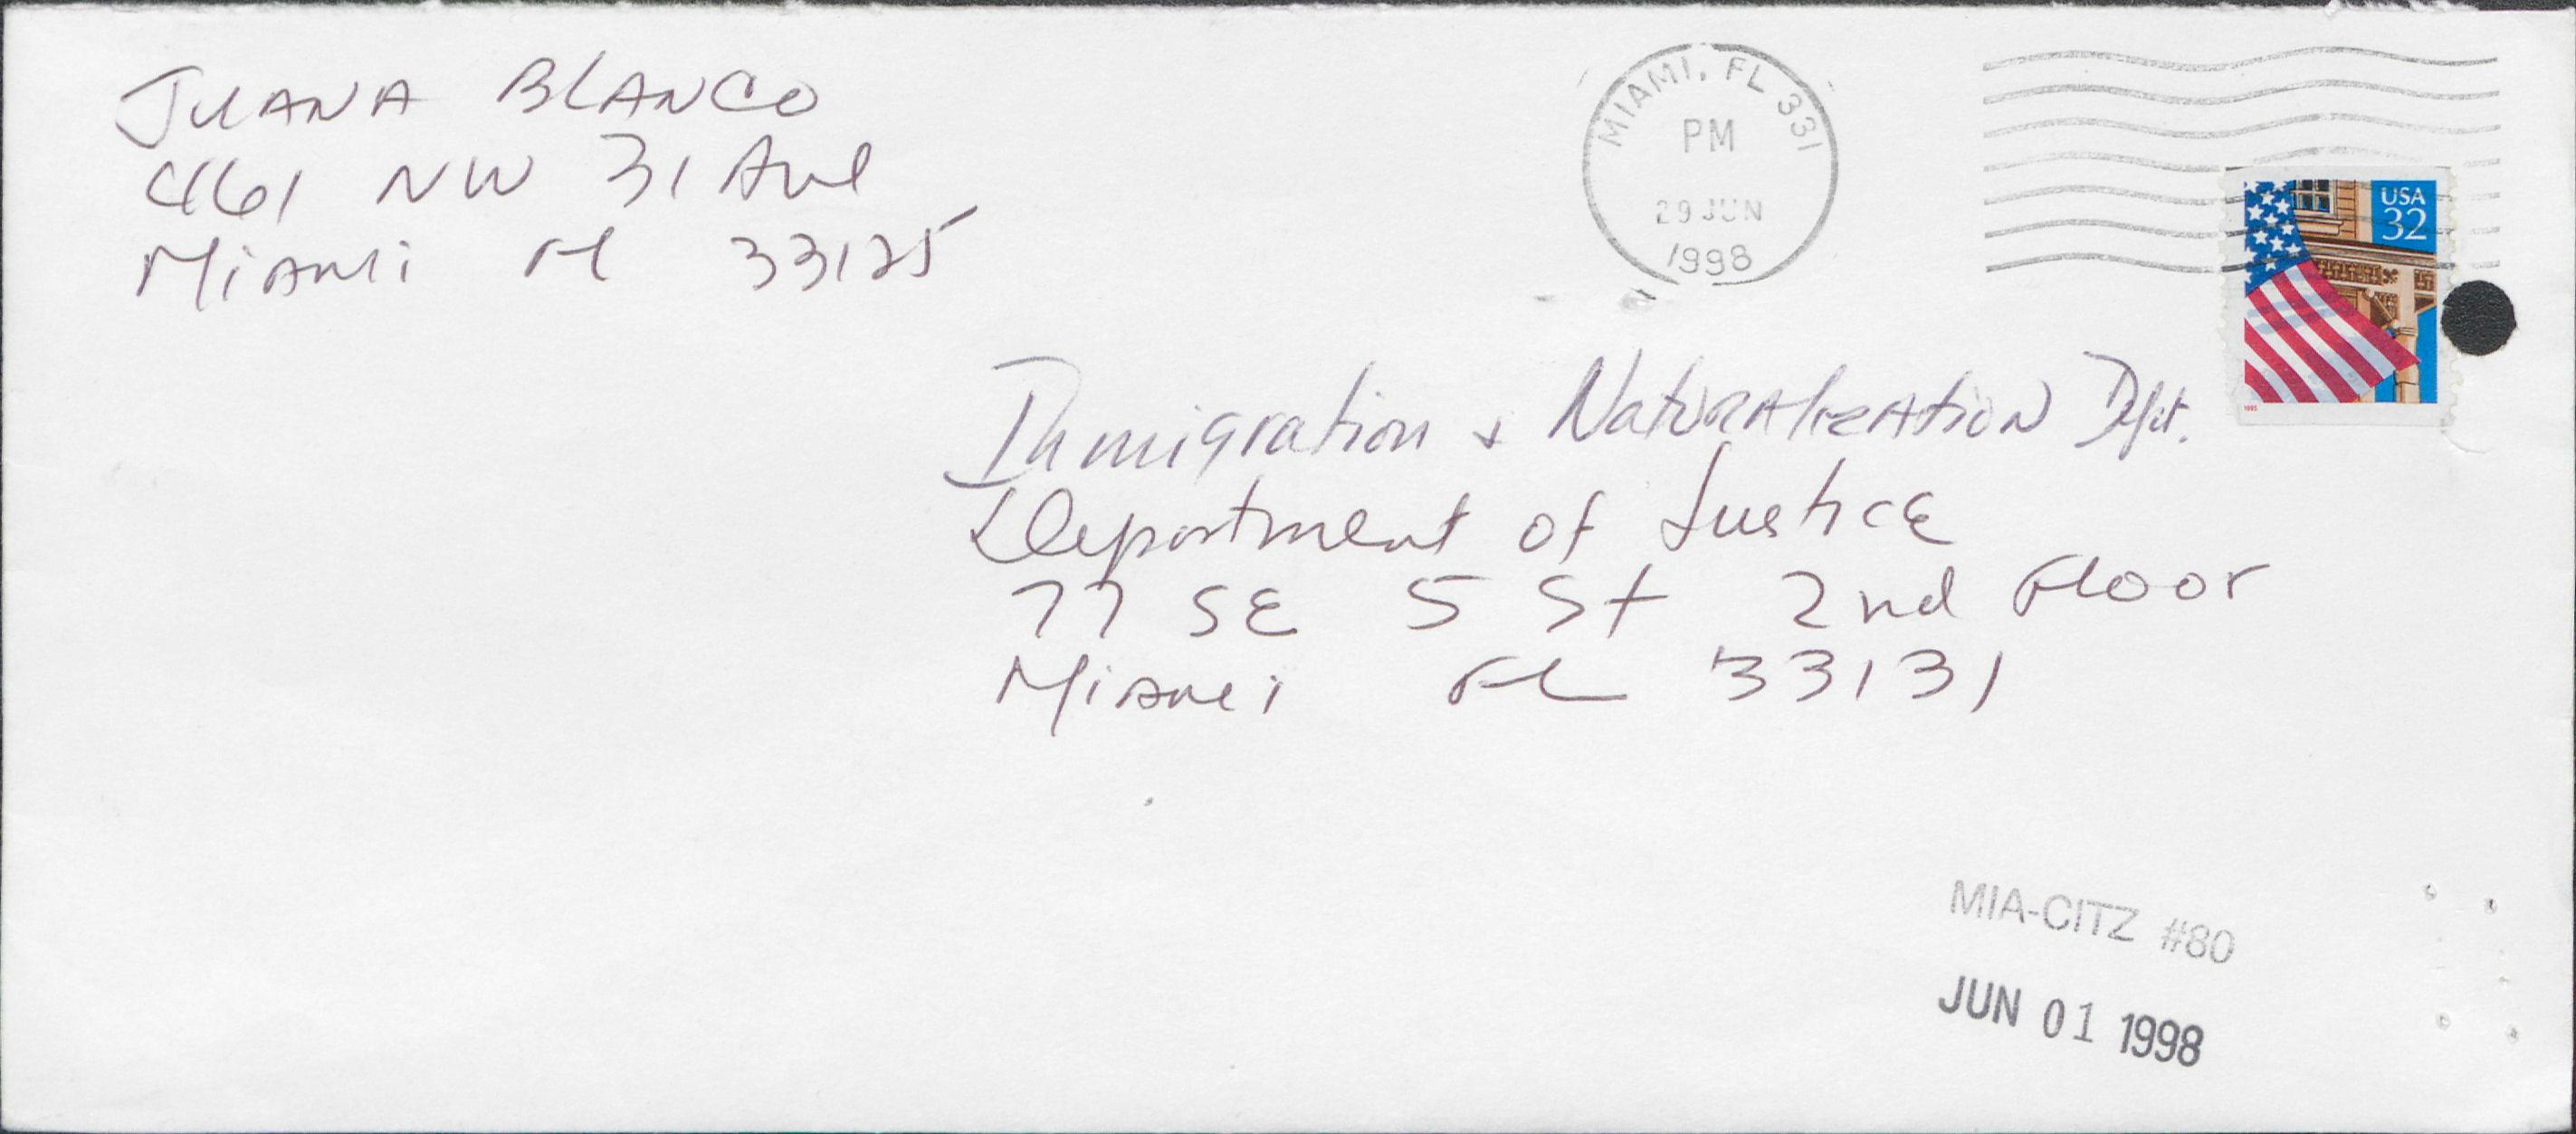 JUANA BLANCO
461 NW 31 Ave
Miami Fl 33125
MIAMI, FL 331
PM
29 JUN
1998
USA
32
1995
Inmigration & Naturalization Dept.
Department of Justice
77 SE 5 St 2nd Floor
Miami FL 33131
MIA-CITZ #80
JUN 01 1998